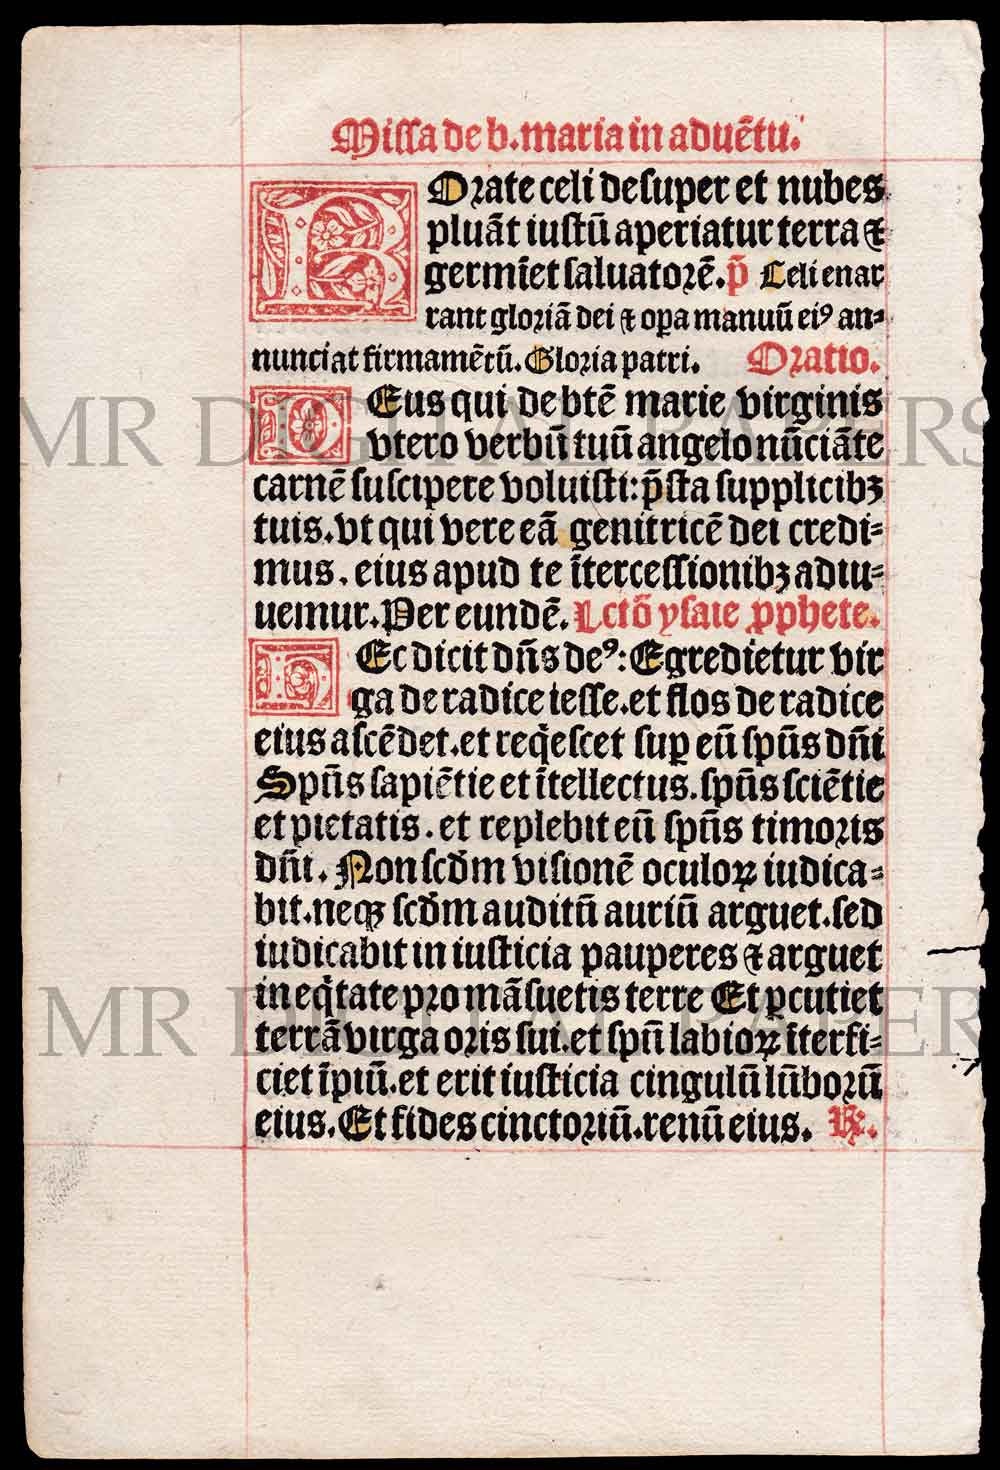 Missa de b. maria in aduētu.
ROrate celi desuper et nubes
pluāt iustū aperiatur terra ⁊
germīet saluatorē. p̄ Celi enar
rant gloriā dei ⁊ oꝑa manuū eiꝰ an⸗
nunciat firmamētū. Gloria patri. Oratio.
DEus qui de btē marie virginis
vtero verbū tuū angelo nūciāte
carnē suscipere voluisti: p̄sta supplicibꝫ
tuis. vt qui vere eā genitricē dei credi⸗
mus. eius apud te ītercessionibꝫ adiu⸗
uemur. Per eundē. Lctō ysaie ꝓphete.
HEc dicit dn̄s deꝰ: Egredietur vir
ga de radice iesse. et flos de radice
eius ascēdet. et reqͥescet suꝑ eū spūs dn̄i
Spūs sapiētie et ītellectus. spūs sciētie
et pietatis. et replebit eū spūs timoris
dn̄i. Non scd̄m visionē oculoꝝ iudica⸗
bit. neqꝫ scd̄m auditū auriū arguet. sed
iudicabit in iusticia pauperes ⁊ arguet
in eqͥtate pro māsuetis terre Et ꝑcutiet
terrā virga oris sui. et spū labioꝝ īterfi⸗
ciet īpiū. et erit iusticia cingulū lūborū
eius. Et fides cinctoriū. renū eius. ℟.
MR DIGITAL PAPERS
MR DIGITAL PAPER